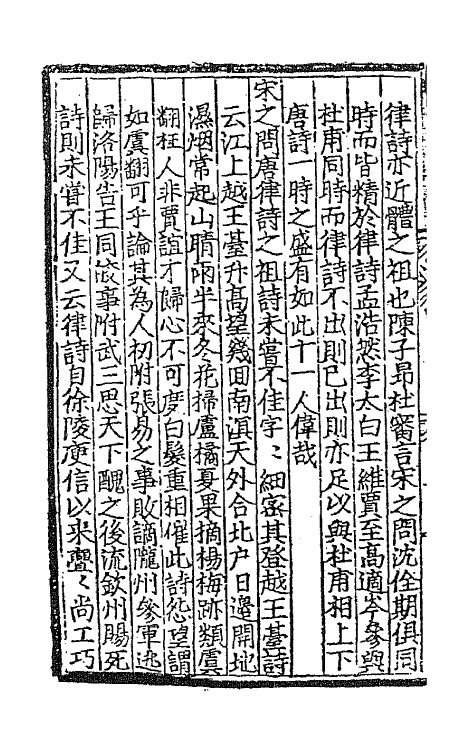 律詩亦近體之祖也陳子昂杜審言宋之問沈佺期俱同
時而皆精於律詩孟浩然李太白王維賈至高適岑參與
杜甫同時而律詩不出則已出則亦足以與杜甫相上下
唐詩一時之盛有如此十一人偉哉
宋之問唐律詩之祖詩未嘗不佳字〻細密其登越王䑓詩
云江上越王䑓升高望幾回南溟天外合北户日邊開地
濕烟常起山晴雨半來冬花掃盧橘夏果摘楊梅跡類虞
翻枉人非賈誼才歸心不可度白髮重相催此詩怨望謂
如虞翻可乎論其為人初附張易之事敗謫隴州參軍逃
歸洛陽告王同皎事附武三思天下醜之後流欽州賜死
詩則未嘗不佳又云律詩自徐陵庾信以来亹〻尚工巧